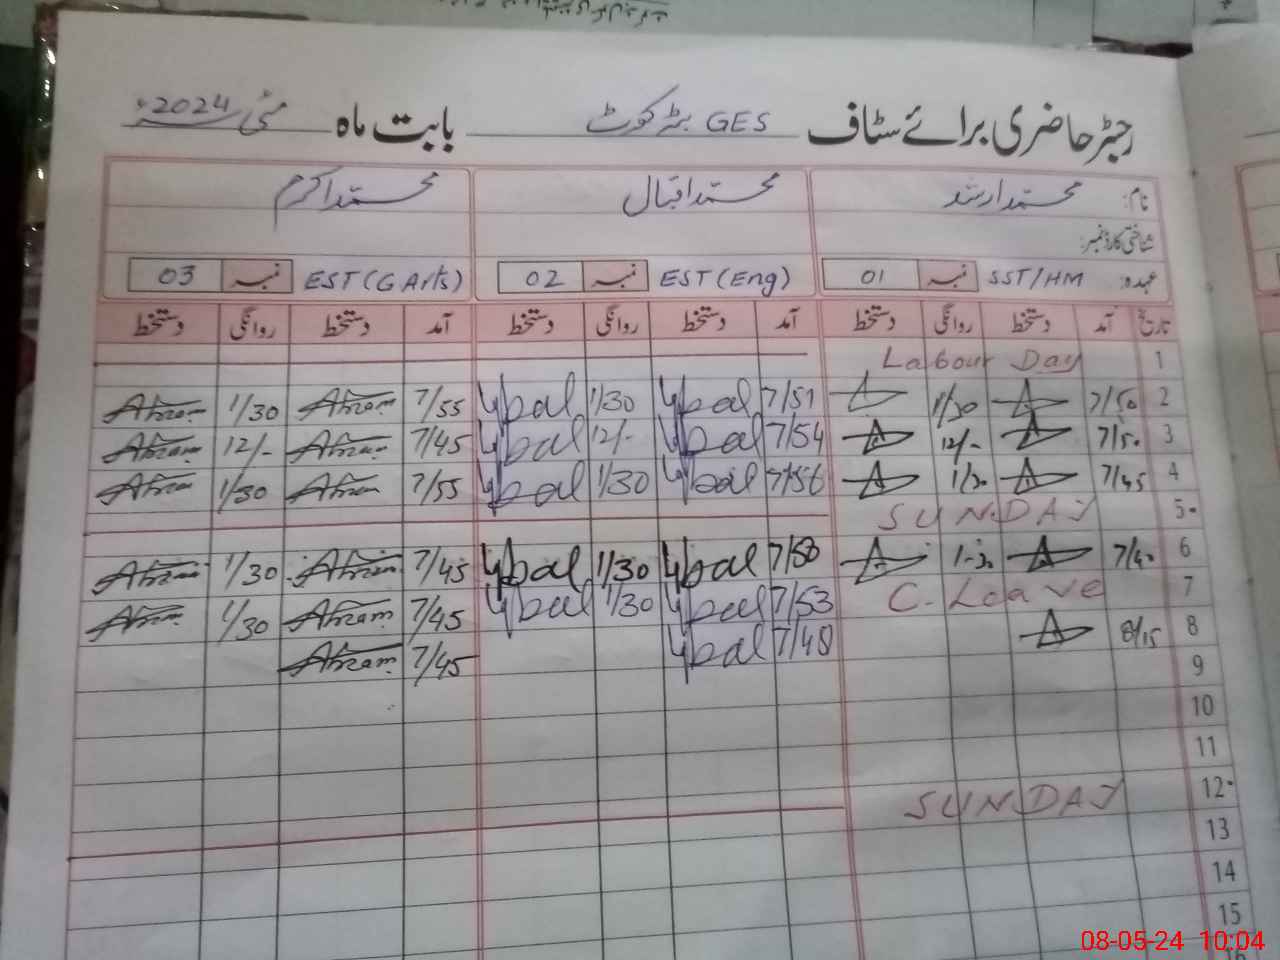 رجسٹر حاضری برائے سٹاف GES بٹر کوٹ بابت ماہ مئی 2024ء
نام: محمد ارشد محمد اقبال محمد اکرم
شناختی کارڈ نمبر:
عہدہ: SST/HM نمبر 01 EST (Eng) نمبر 02 EST (G Arts) نمبر 03
تاریخ آمد دستخط روانگی دستخط آمد دستخط روانگی دستخط آمد دستخط روانگی دستخط
1 Labour Day
2 7/50 1/30 7/51 Iqbal 1/30 Iqbal 7/55 Akram 1/30 Akram
3 7/50 12/- 7/54 Iqbal 12/- Iqbal 7/45 Akram 12/- Akram
4 7/45 1/30 7/56 Iqbal 1/30 Iqbal 7/55 Akram 1/30 Akram
5 SUNDAY
6 7/40 1-30 7/50 Iqbal 1/30 Iqbal 7/45 Akram 1/30 Akram
7 C. Leave 7/53 Iqbal 1/30 Iqbal 7/45 Akram 1/30 Akram
8 8/15 7/48 Iqbal 7/45 Akram
9
10
11
12 SUNDAY
13
14
15
08-05-24 10:04